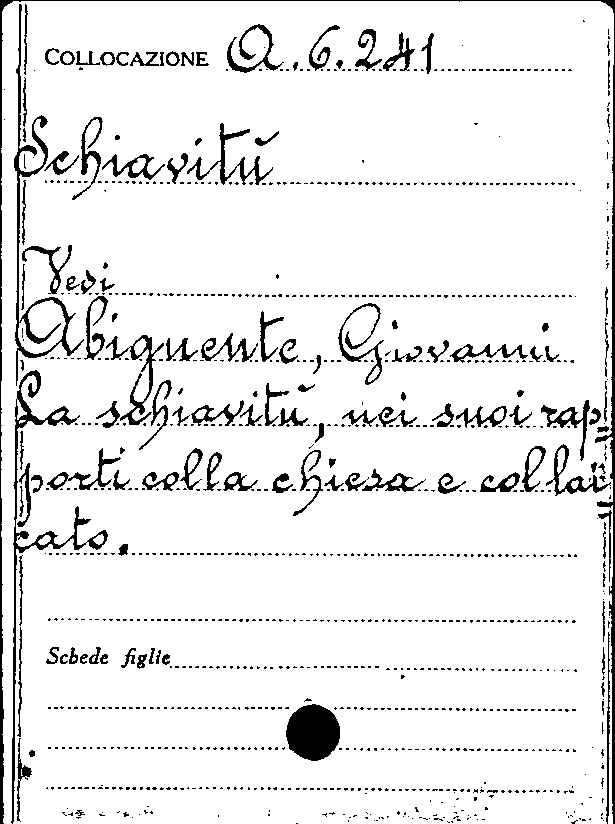 COLLOCAZIONE A.6.241
Schiavitù
Vedi
Abignente, Giovanni
La schiavitù, nei suoi rap=
porti colla chiesa e col lai=
cato.
Schede figlie